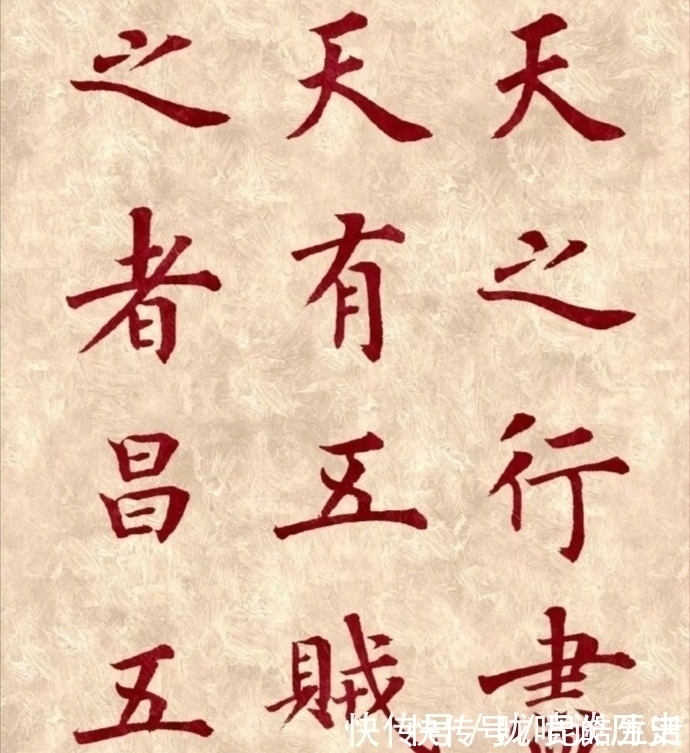 天之行盡
天有五賊
之者昌五
快传号/